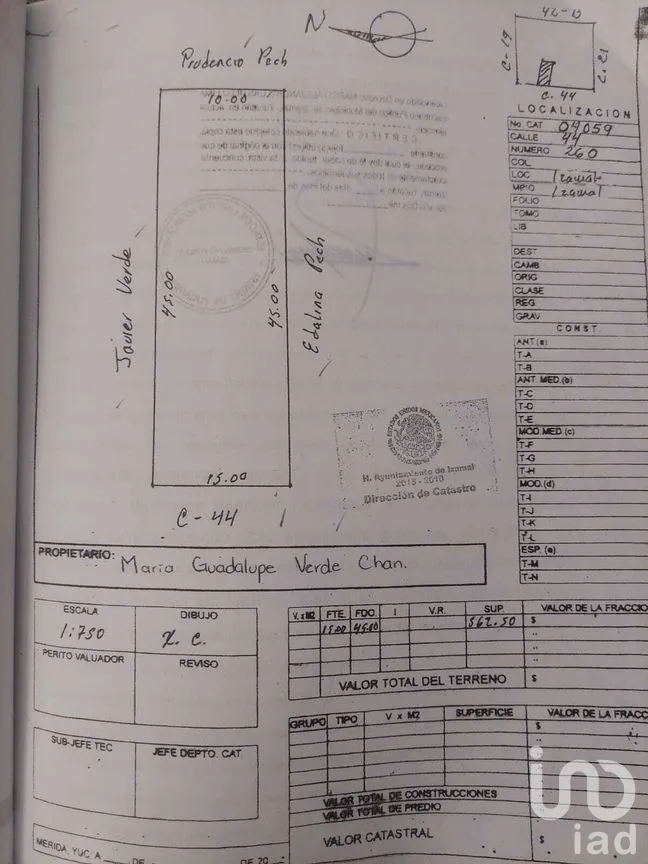 N
42-B
C-19
C. 21
C. 44
Prudencio Pech
10.00
45.00
45.00
15.00
Javier Verde
Edalina Pech
C-44
LOCALIZACION
No CAT 04059
CALLE 44
NUMERO 260
COL
LOC Izamal
MPIO Izamal
FOLIO
TOMO
LIB
DEST
CAMB
ORIG
CLASE
REG
GRAV
CONST.
ANT.(a)
T-A
T-B
ANT. MED.(b)
T-C
T-D
T-E
MOD MED (c)
T-F
T-G
T-H
MOD.(d)
T-I
T-J
T-K
T-L
ESP. (e)
T-M
T-N
ESTADOS UNIDOS MEXICANOS
H. Ayuntamiento de Izamal
2015 - 2018
Dirección de Catastro
PROPIETARIO: María Guadalupe Verde Chan.
ESCALA DIBUJO
1:750
PERITO VALUADOR REVISO
SUB-JEFE TEC JEFE DEPTO. CAT.
MERIDA, YUC. A DE DE 20
V. x M2 FTE. FDO. I V.R. SUP. VALOR DE LA FRACCIO
15.00 45.00 562.50 $
VALOR TOTAL DEL TERRENO $
GRUPO TIPO V x M2 SUPERFICIE VALOR DE LA FRACC
$
VALOR TOTAL DE CONSTRUCCIONES
VALOR TOTAL DE PREDIO
VALOR CATASTRAL $
uno
iad